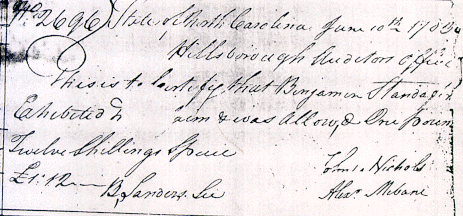 No. 2696 State of North Carolina June 10th 1783
Hillsborough Auditors Office
This is to Certify that Benjamin Standage
Exhibited & was Allowed One Pound
Twelve Shillings Specie
£1.12— B. Sanders. John Nichols
Alexr. Mebane